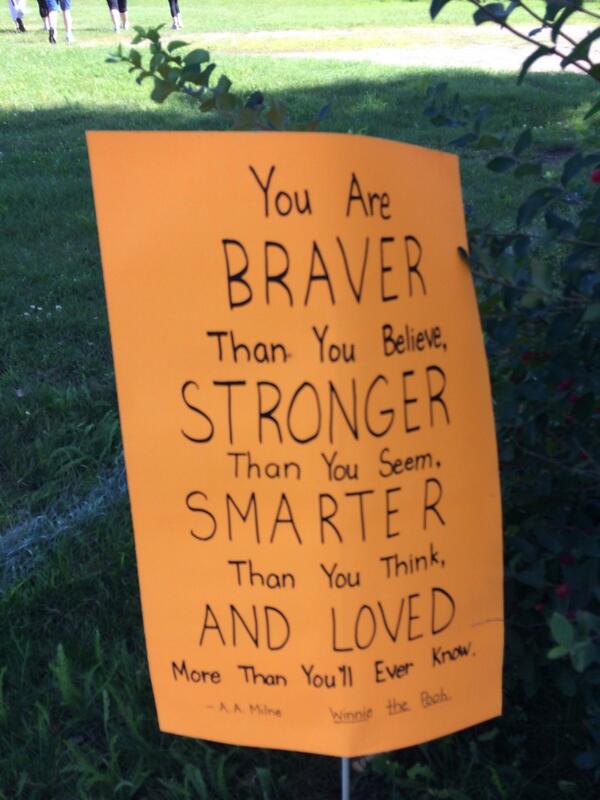 You Are
BRAVER
Than You Believe,
STRONGER
Than You Seem,
SMARTER
Than You Think,
AND LOVED
More Than You'll Ever Know.
- A.A. Milne Winnie the Pooh.